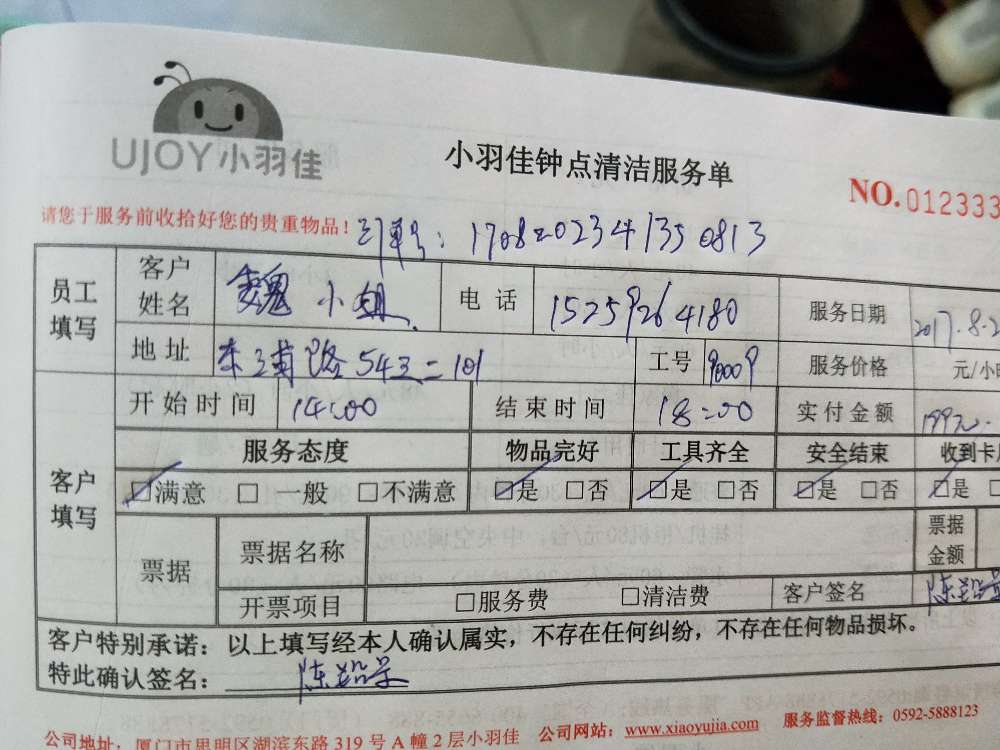 UJOY小羽佳
小羽佳钟点清洁服务单
NO.012333
请您于服务前收拾好您的贵重物品！订单号：1708202341350813
员工填写 客户姓名 魏小姐 电话 15259264180 服务日期 2017.8.2
地址 东浦路543-101 工号 90009 服务价格 元/小
开始时间 14:00 结束时间 18:00 实付金额
客户填写 服务态度 物品完好 工具齐全 安全结束 收到卡
☑满意 □一般 □不满意 ☑是 □否 ☑是 □否 ☑是 □否 ☑是
票据 票据名称 票据金额
开票项目 □服务费 □清洁费 客户签名
客户特别承诺：以上填写经本人确认属实，不存在任何纠纷，不存在任何物品损坏。
特此确认签名：
公司地址：厦门市思明区湖滨东路319号A幢2层小羽佳 公司网站：www.xiaoyujia.com 服务监督热线：0592-5888123